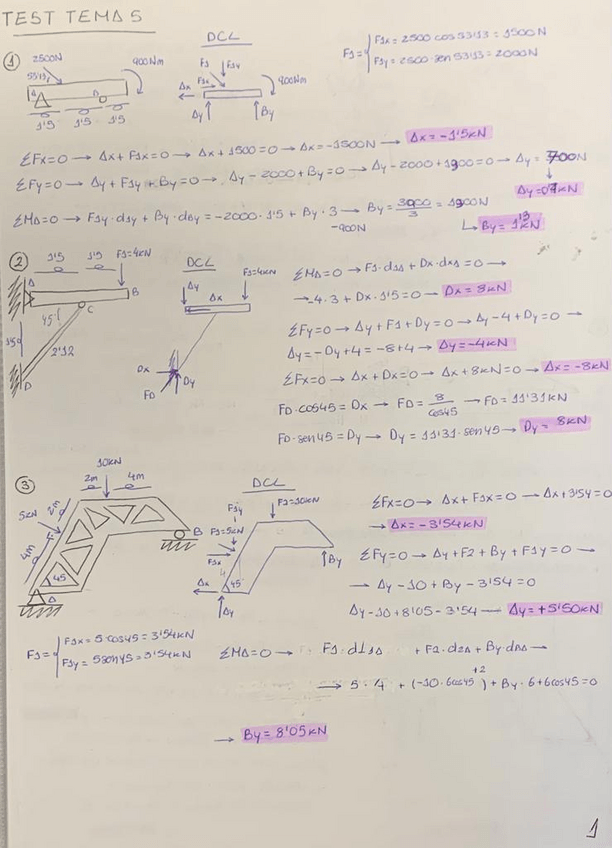 TEST TEMA 5
① 2500N 53'13 900Nm A B 1'5 1'5 1'5
DCL F1 F1y F1x 900Nm Ax Ay By
F1= F1x = 2500 cos 53'13 = 1500N
F1y = 2500·sen 53'13 = 2000N
ΣFx=0 → Ax + F1x = 0 → Ax + 1500 = 0 → Ax = -1500N → Ax = -1'5kN
ΣFy=0 → Ay + F1y + By = 0 → Ay - 2000 + By = 0 → Ay - 2000 + 1900 = 0 → Ay = 700N
Ay = 0'7kN
ΣMA=0 → F1y·d1y + By·dBy = -2000·1'5 + By·3 → By = 3900/3 = 1900N
-900N
↳ By = 1'3kN
② 1'5 1'5 F1=4kN A B C 45° 1'50 2'12 D
DCL F1=4kN Ay Ax Dx FD Dy
ΣMA=0 → F1·d1A + Dx·dxA = 0 →
→ -4·3 + Dx·1'5 = 0 → Dx = 8kN
ΣFy=0 → Ay + F1 + Dy = 0 → Ay - 4 + Dy = 0 →
Ay = -Dy + 4 = -8 + 4 → Ay = -4kN
ΣFx=0 → Ax + Dx = 0 → Ax + 8kN = 0 → Ax = -8kN
FD·cos45 = Dx → FD = 8/cos45 → FD = 11'31kN
FD·sen45 = Dy → Dy = 11'31·sen45 → Dy = 8kN
③ 10kN 2m 4m 5kN 2m 4m 45 A B
DCL F1y F2=10kN F1=5kN F1x 4 45 Ax Ay By
ΣFx=0 → Ax + F1x = 0 → Ax + 3'54 = 0
→ Ax = -3'54kN
ΣFy=0 → Ay + F2 + By + F1y = 0 →
→ Ay - 10 + By - 3'54 = 0
Ay - 10 + 8'05 - 3'54 → Ay = +5'50kN
F1= F1x = 5 cos45 = 3'54kN
F1y = 5sen45 = 3'54kN
ΣMA=0 → F1·d1A + F2·d2A + By·dBA →
→ 5·4 + (-10·6cos45+2) + By·6+6cos45=0
→ By = 8'05kN
1